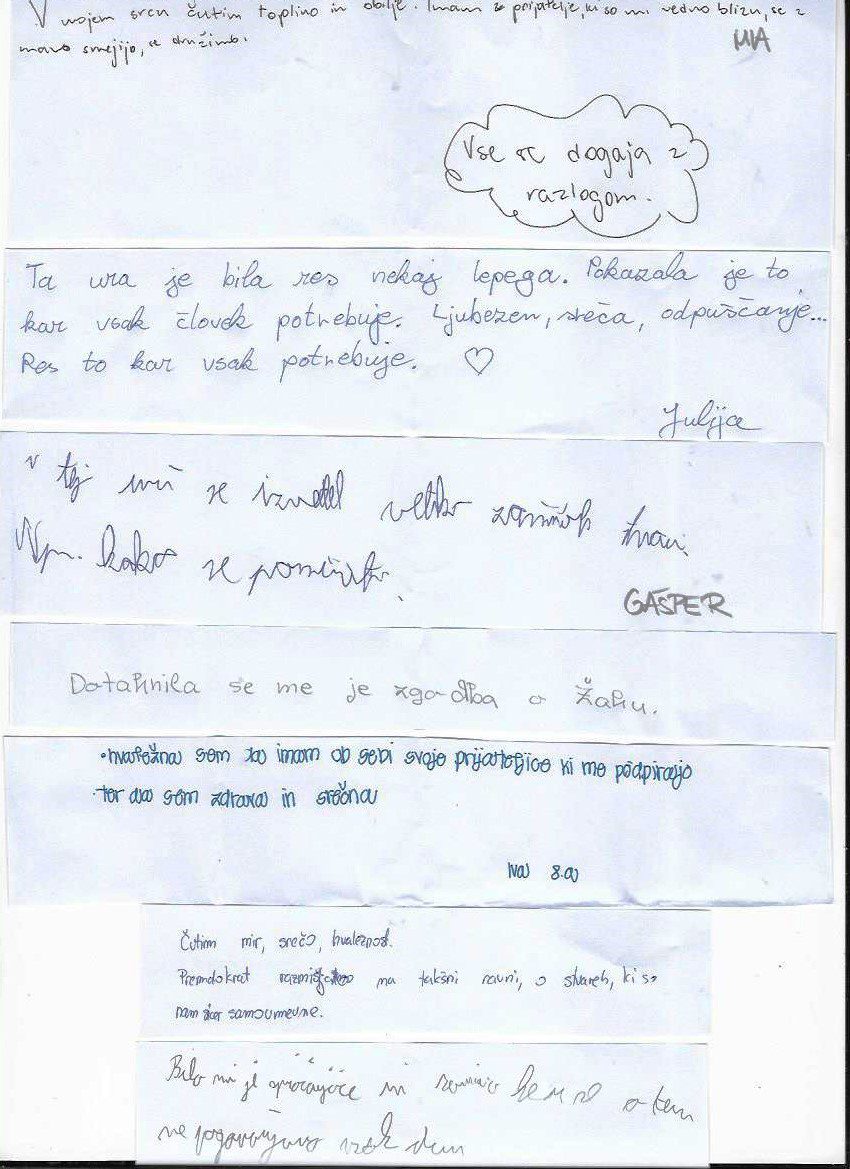 V mojem srcu čutim toplino in obilje. Imam prijatelje, ki so mi vedno blizu, se z
mano smejijo, se družimo.
MIA
Vse se dogaja z
razlogom.
Ta ura je bila res nekaj lepega. Pokazala je to
kar vsak človek potrebuje. Ljubezen, sreča, odpuščanje...
Res to kar vsak potrebuje. ♡
Julija
V tej uri se izvedel veliko stvari.
Npr. kako se pomiriti.
GAŠPER
Dotaknila se me je zgodba o Žaku.
•hvaležna sem da imam ob sebi svoje prijateljice ki me podpirajo
-ter da sem zdrava in srečna
Iva 8.a
Čutim mir, srečo, hvaležnost.
Premdokrat na takšni ravni, o stvareh, ki so
nam sicer samoumevne.
Bilo mi je sproščujoče in zanimivo ker se o tem
ne pogovarjamo vsak dan